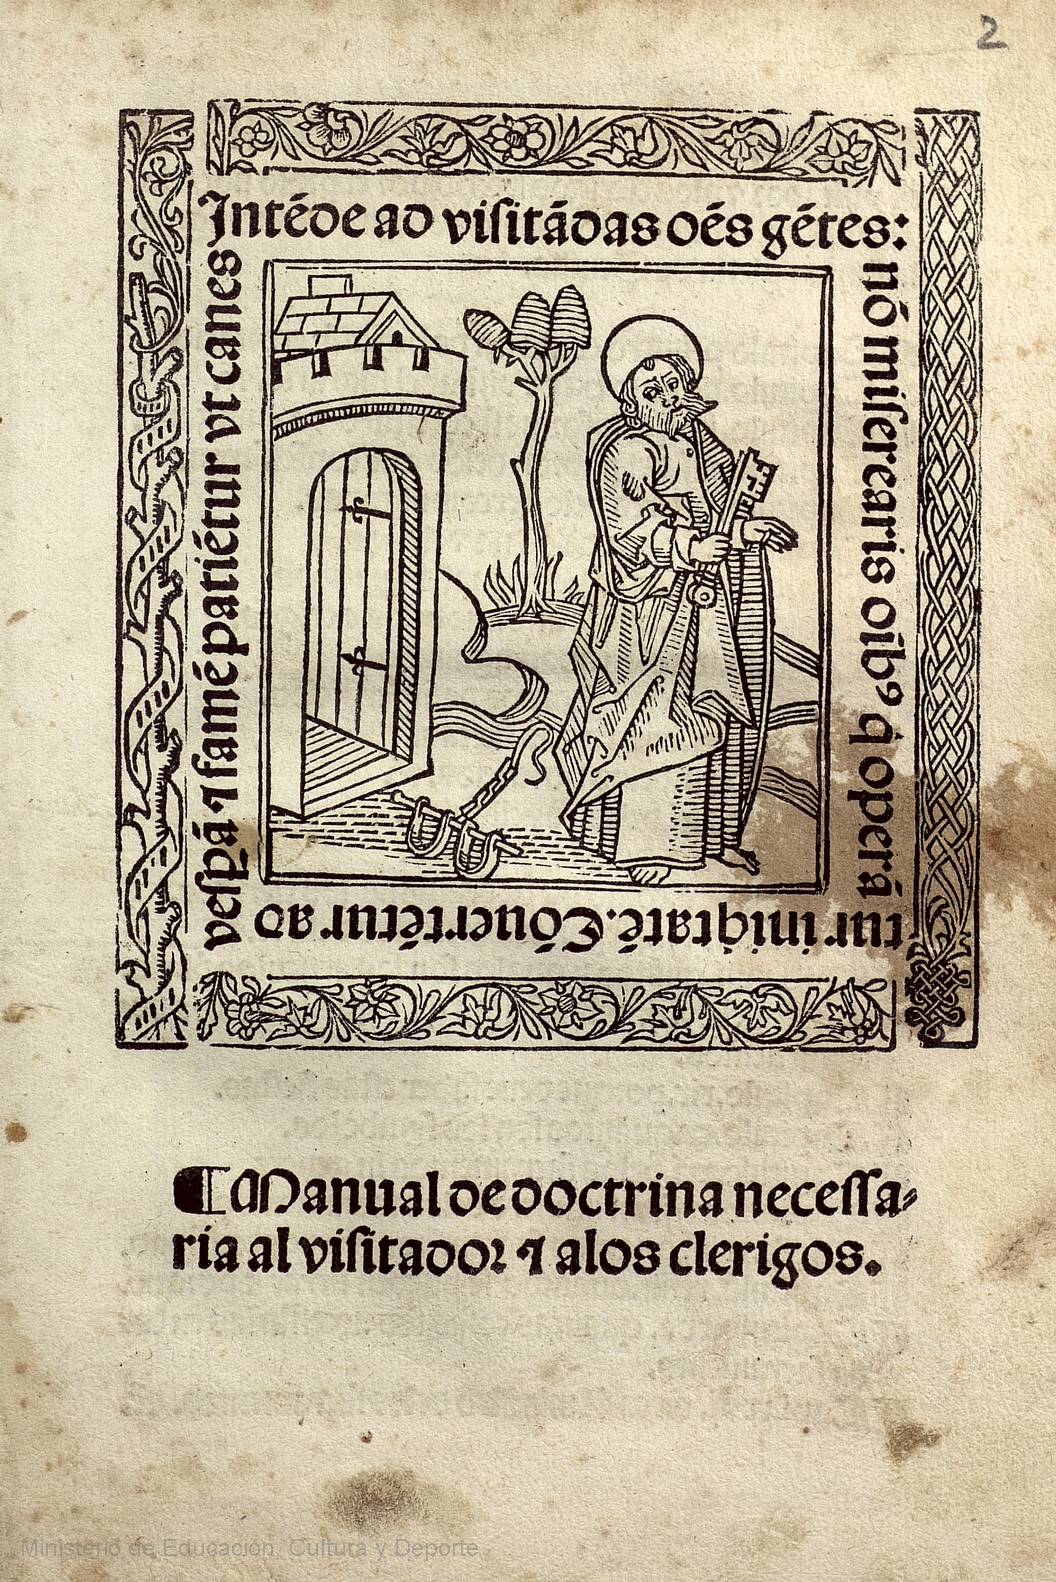 2
Intẽde ad viſitãdas oẽs gẽtes:
nõ miſerearis oĩbꝰ q̃ operã
tur iniq̃tatẽ. Cõuertẽtur ad
veſpã ⁊ famẽ patiẽtur vt canes
¶ Manual de doctrina neceſſa⸗
ria al viſitador ⁊ alos clerigos.
Ministerio de Educación, Cultura y Deporte